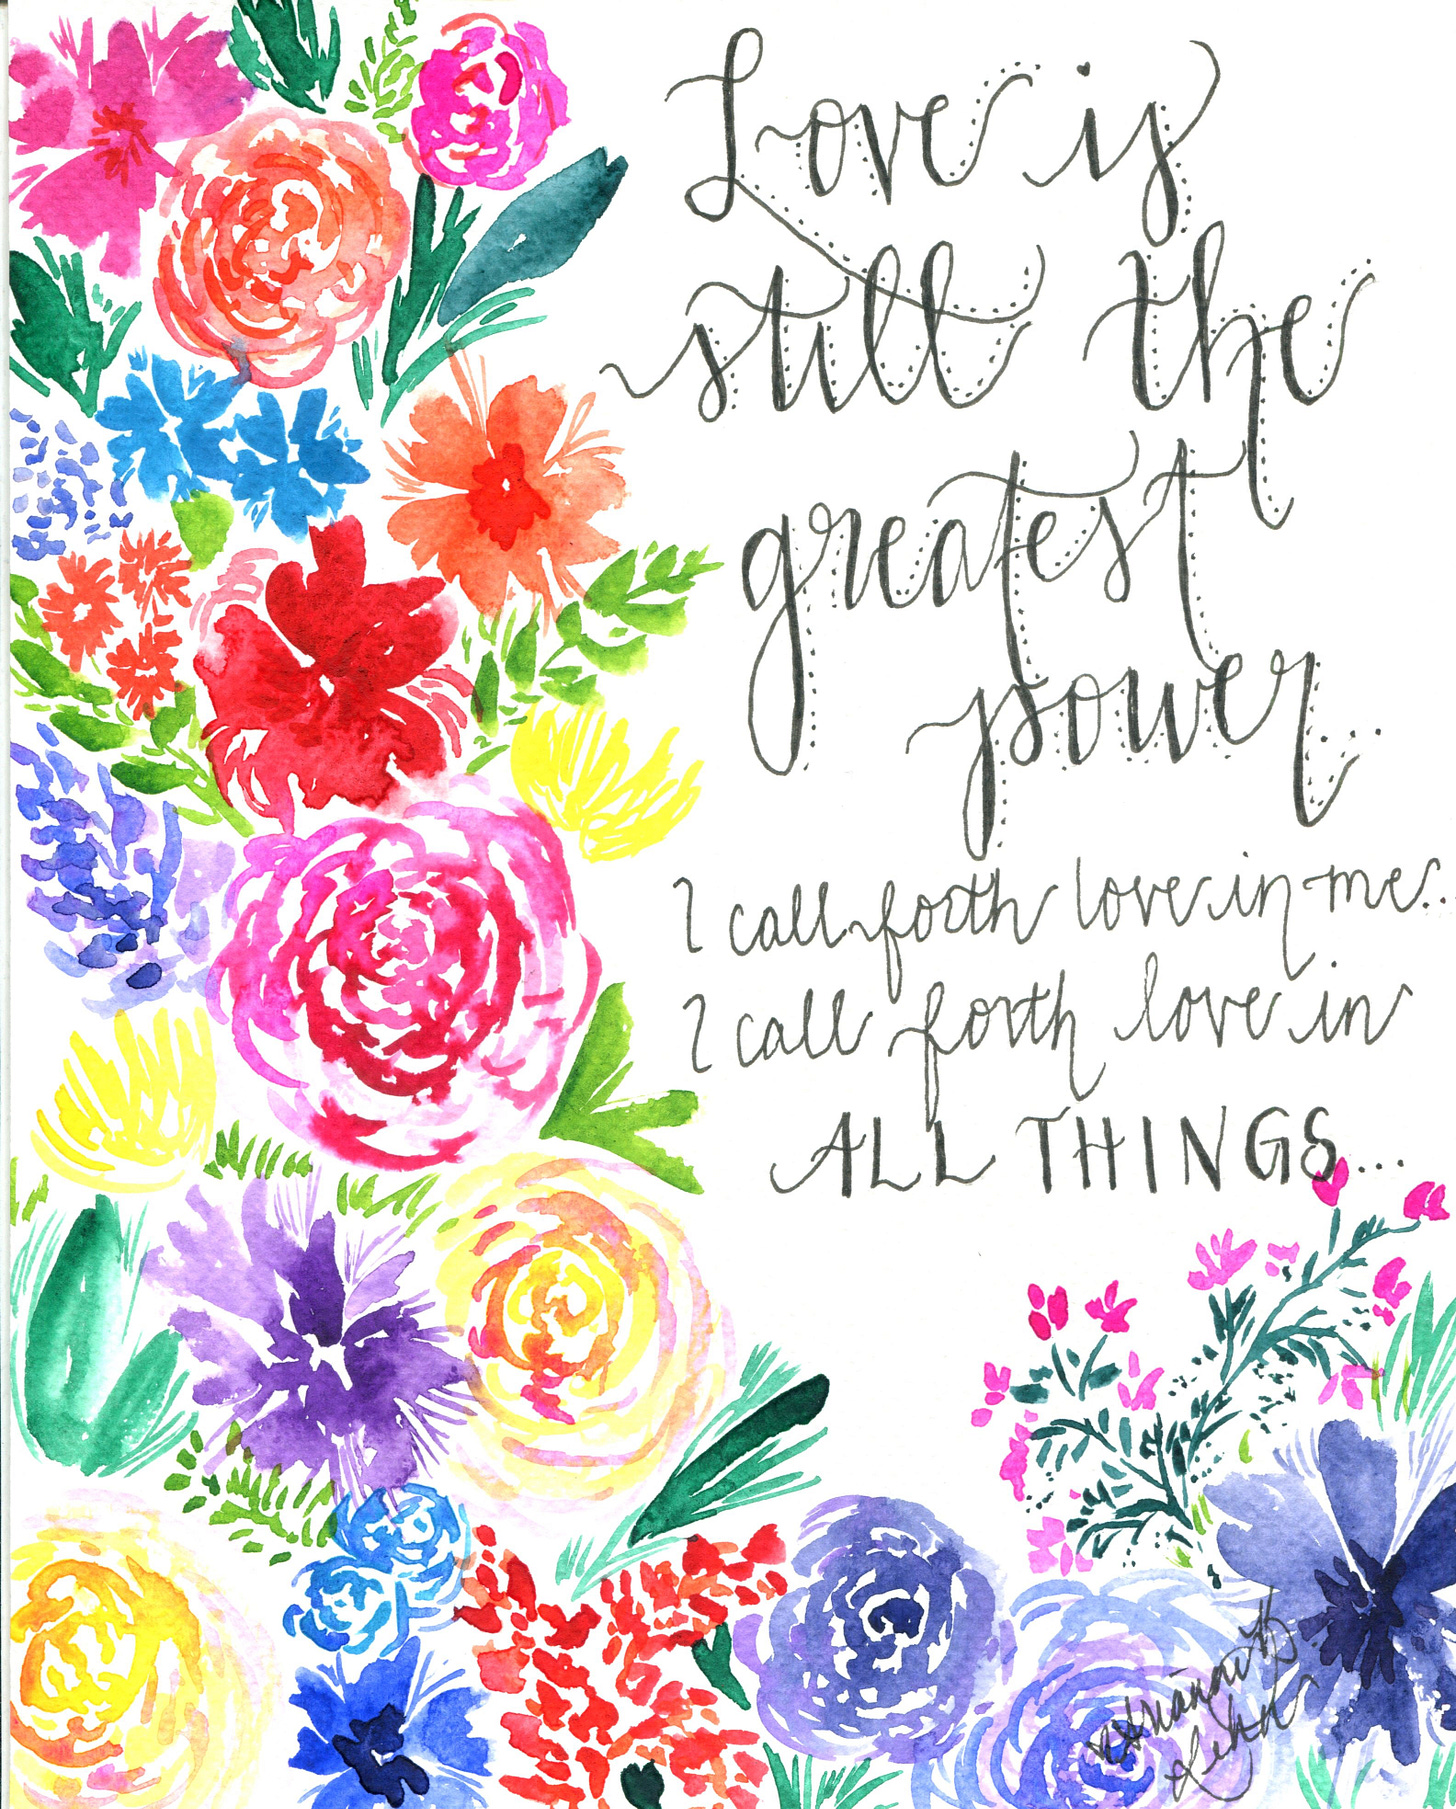 Love is
still the
greatest
power...
I call forth love in me..
I call forth love in
ALL THINGS...